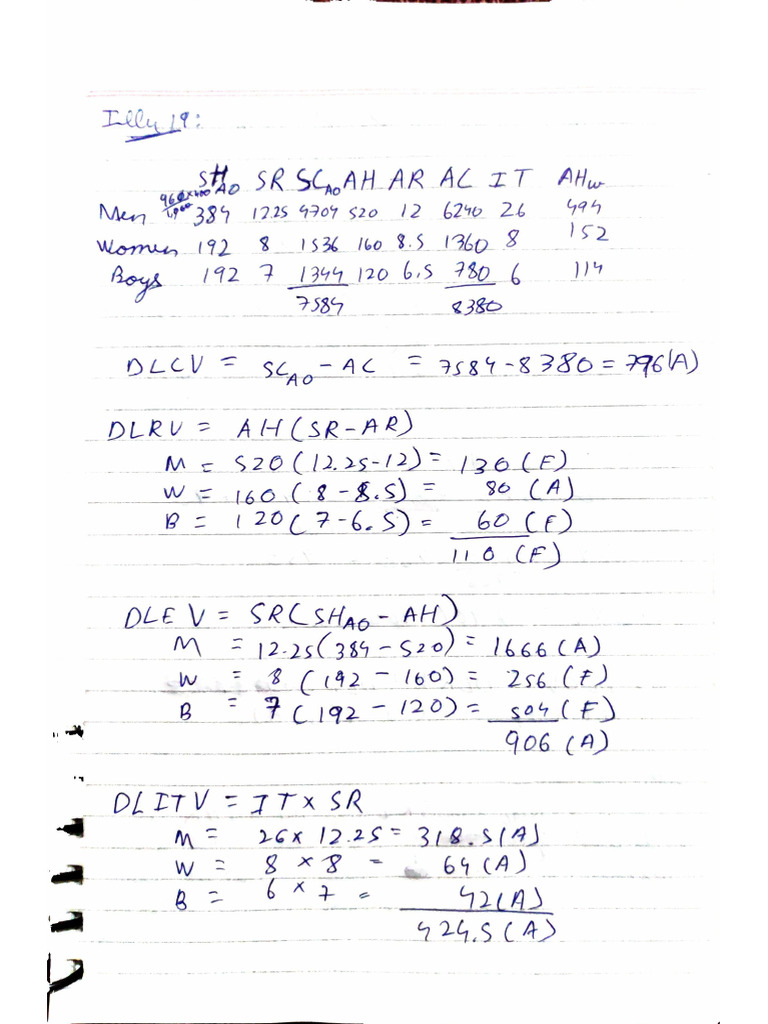 Illy 19:
SH AO SR SC AO AH AR AC IT AHw
Men 384 12.25 4704 520 12 6240 26 494
Women 192 8 1536 160 8.5 1360 8 152
Boys 192 7 1344 120 6.5 780 6 114
7584 8380
DLCV = SC AO - AC = 7584-8380 = 796(A)
DLRV = AH(SR-AR)
M = 520(12.25-12) = 130(F)
W = 160(8-8.5) = 80(A)
B = 120(7-6.5) = 60(F)
110(F)
DLEV = SR(SH AO - AH)
M = 12.25(384-520) = 1666(A)
W = 8(192-160) = 256(F)
B = 7(192-120) = 504(F)
906(A)
DLITV = IT x SR
M = 26 x 12.25 = 318.5(A)
W = 8 x 8 = 64(A)
B = 6 x 7 = 42(A)
424.5(A)